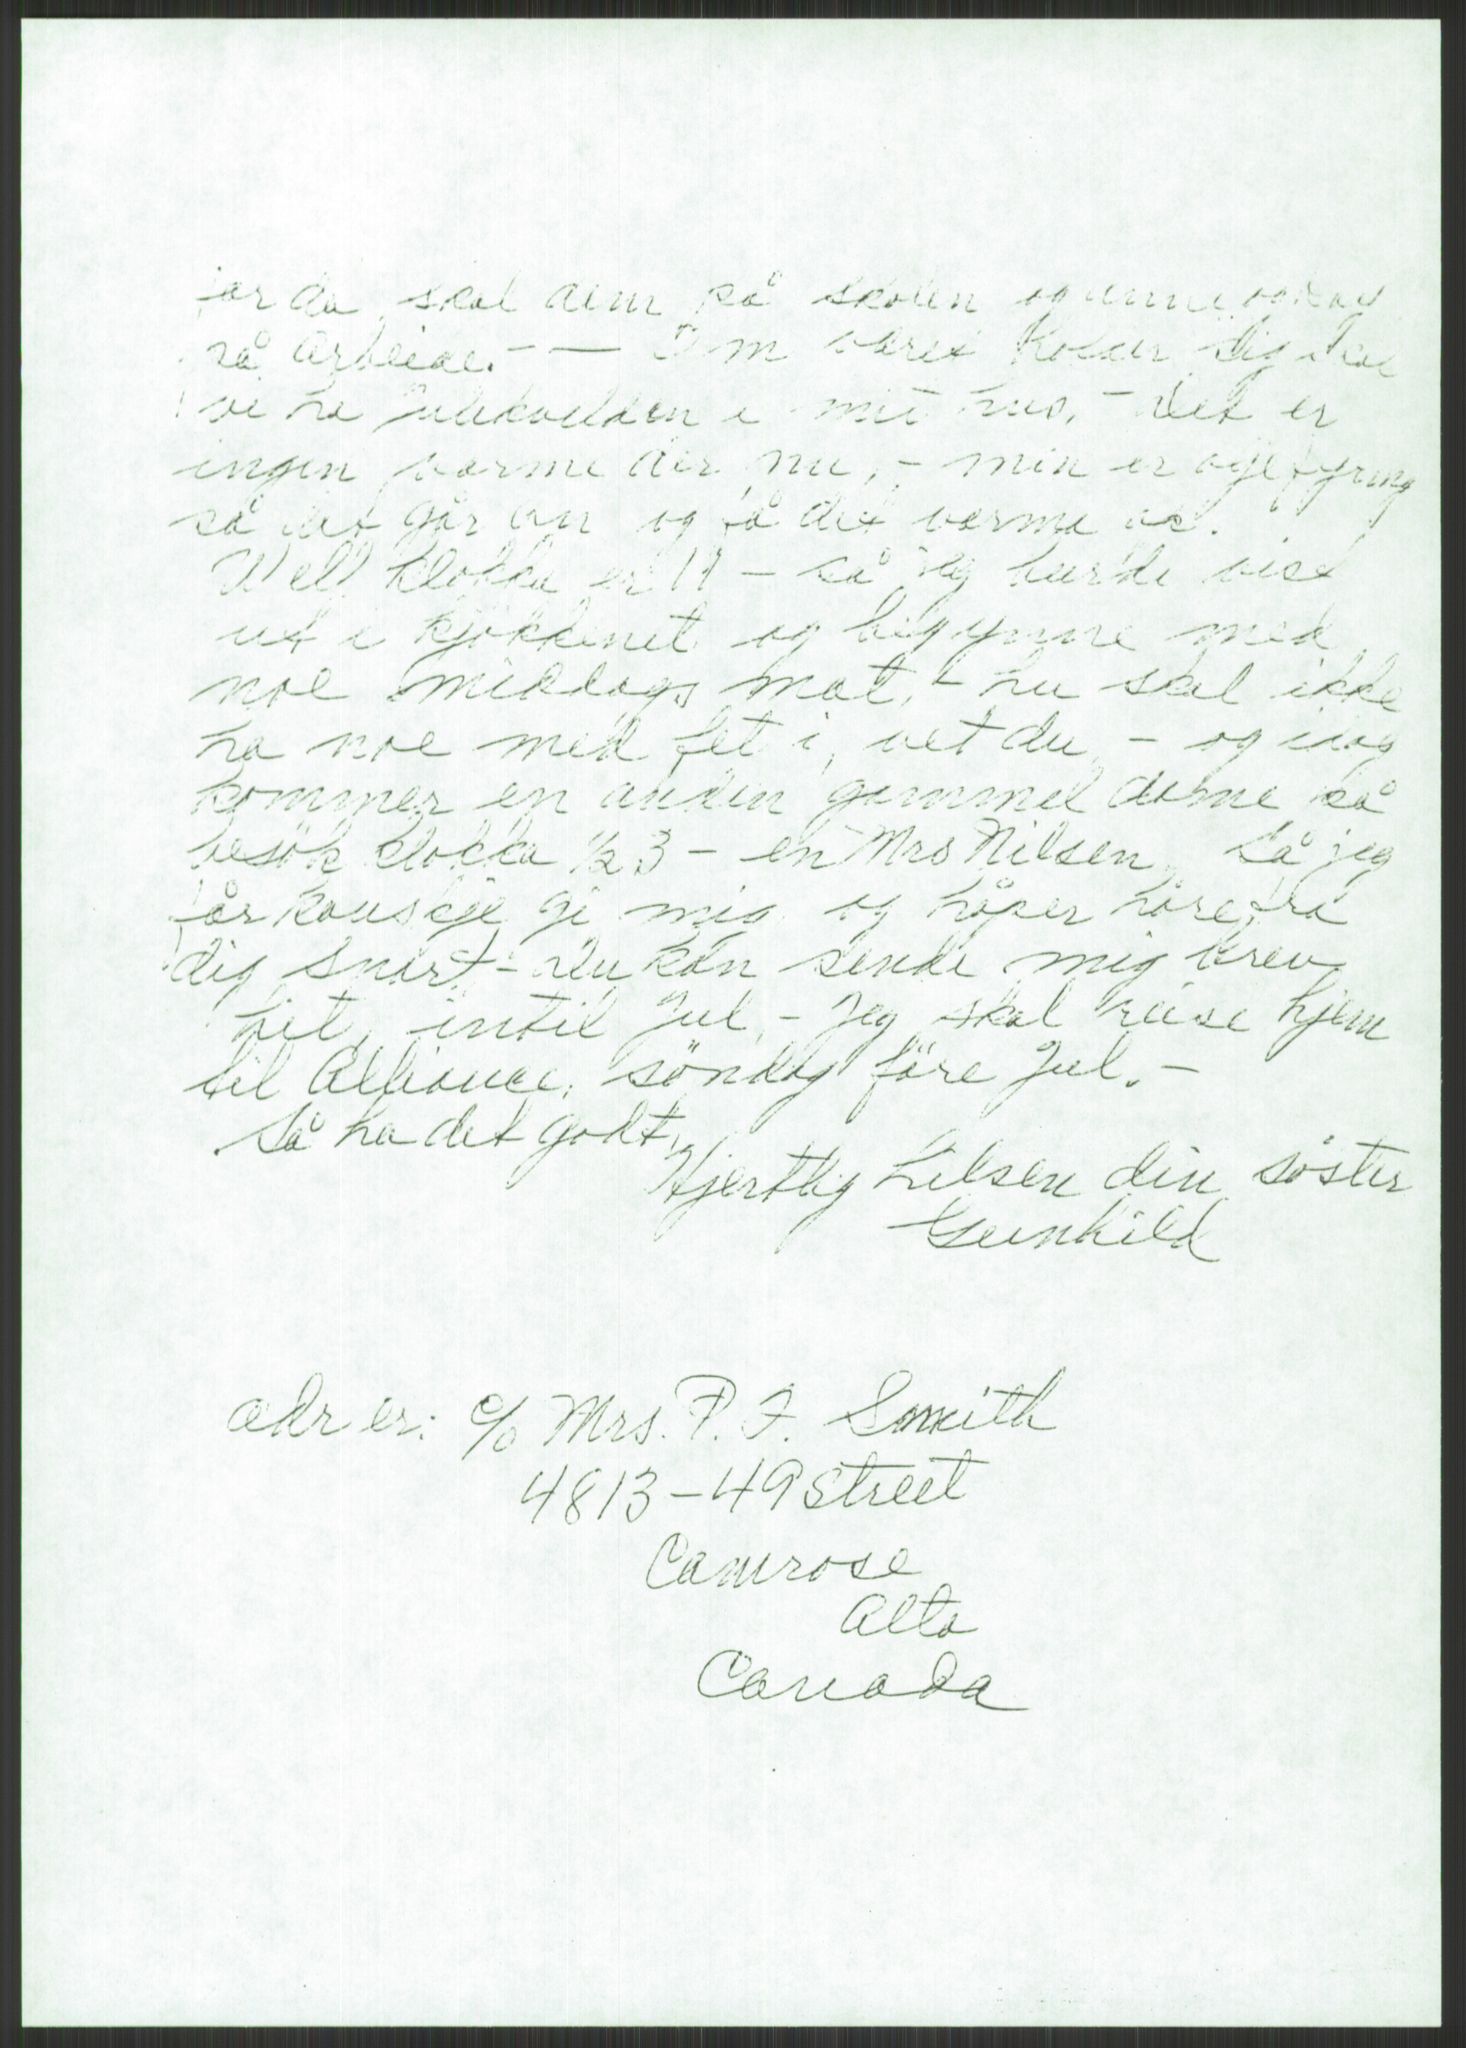 for da skal dem på skolen og
så arbeide. — — Om været holder sig skal
vi ha julekvelden i mit hus, - det er
ingen varme der nu, - min er oljefyring
så det går an og få det varmt
Well klokka er 11 - så jeg burde vist
ut i kjøkkenet og begynne med
noe middags mat, - hu skal ikke
ha noe med fet i, vet du - og idag
kommer en anden gammel dame på
besök klokka ½ 3 - en Mrs Nilsen, Så jeg
får kanskje gi mig og håper höre fra
dig snart - du kan sende mig brev
hit, intil jul, - Jeg skal reise hjem
til Alliance, söndag före Jul. -
Så ha det godt,
Hjertlig hilsen din söster
Gunhild
adr er: c/o Mrs. P. F. Smith
4813 - 49 Street
Camrose
Alta
Canada